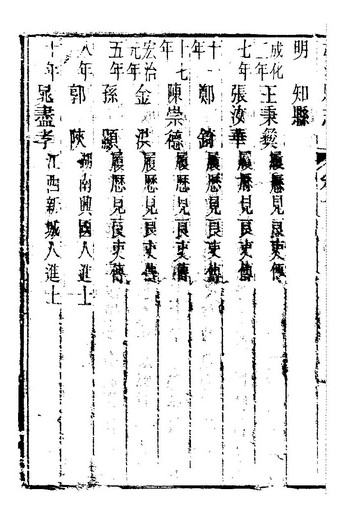 明 知縣
成化二年 王秉彝 履歷見良吏傳
七年 張汝華 履歷見良吏傳
十一年 鄭鏥 履歷見良吏傳
十七年 陳崇德 履歷見良吏傳
宏治元年 金洪 履歷見良吏傳
五年 孫顯 履歷見良吏傳
八年 郭陝 湖南興國人進士
十年 晁盡孝 江西新城人進士